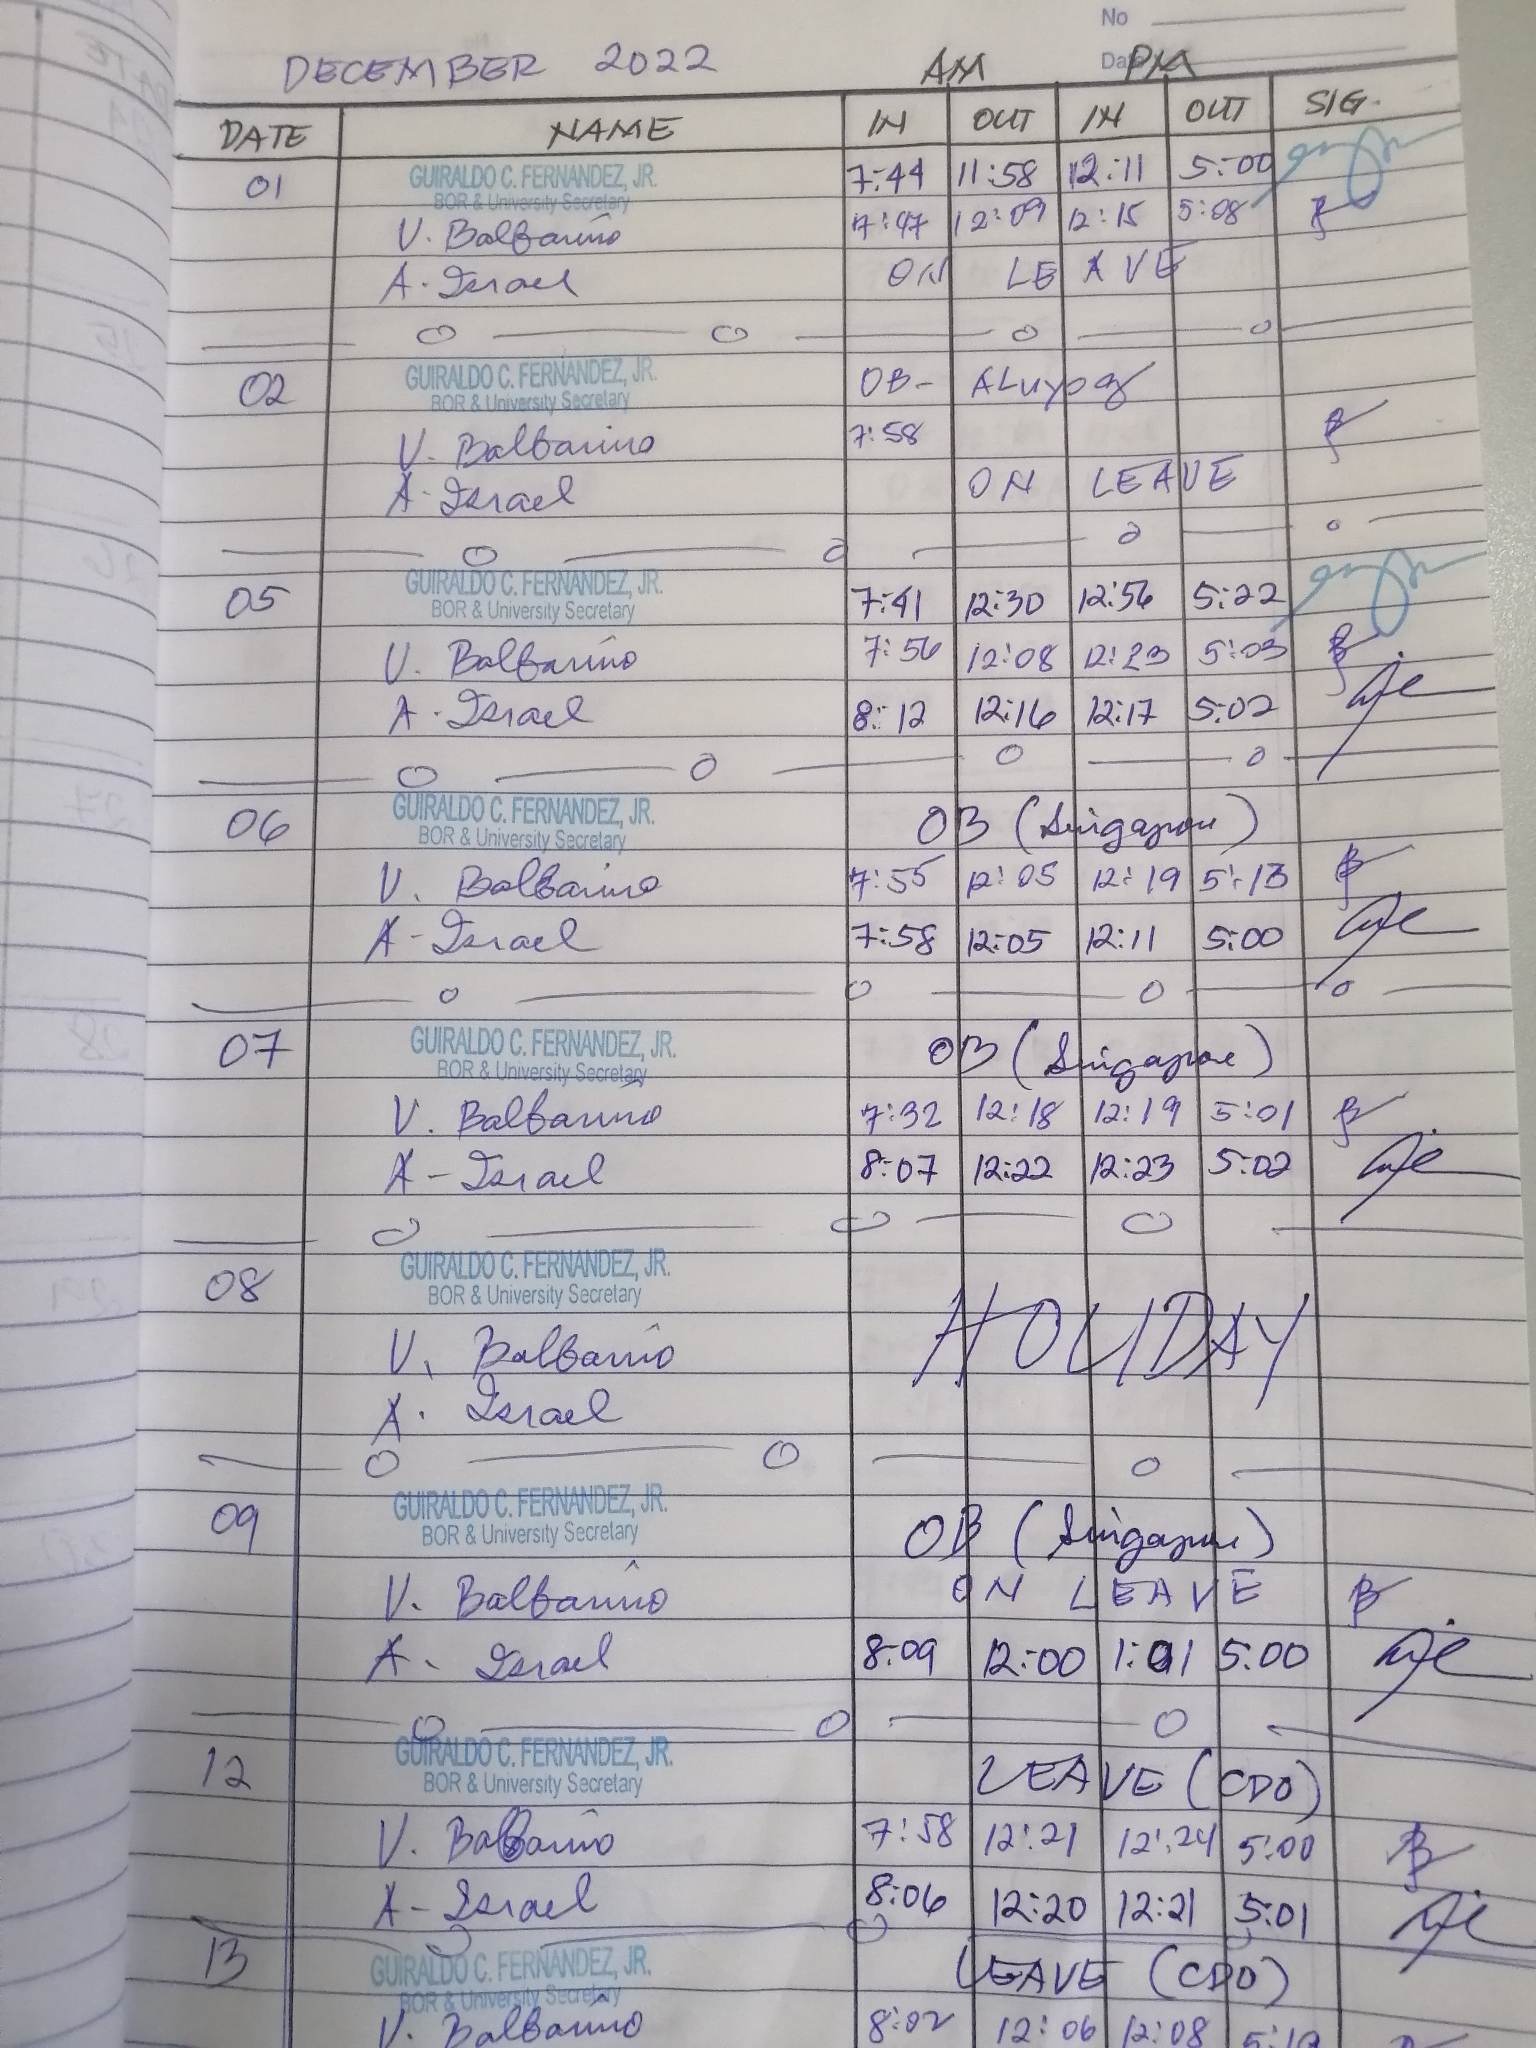 No
Da
DECEMBER 2022 AM PM
DATE NAME IN OUT IN OUT SIG.
01 GUIRALDO C. FERNANDEZ, JR. 7:44 11:58 12:11 5:00
BOR & University Secretary
V. Balbarino 7:47 12:09 12:15 5:08
A. Israel ON LEAVE
02 GUIRALDO C. FERNANDEZ, JR. OB-
BOR & University Secretary
V. Balbarino 7:58
A. Israel ON LEAVE
05 GUIRALDO C. FERNANDEZ, JR. 7:41 12:30 12:56 5:22
BOR & University Secretary
V. Balbarino 7:56 12:08 12:23 5:03
A. Israel 8:12 12:16 12:17 5:02
06 GUIRALDO C. FERNANDEZ, JR. OB (Singapore)
BOR & University Secretary
V. Balbarino 7:55 12:05 12:19 5:13
A- Israel 7:58 12:05 12:11 5:00
07 GUIRALDO C. FERNANDEZ, JR. OB (Singapore)
BOR & University Secretary
V. Balbarino 7:32 12:18 12:19 5:01
A- Israel 8:07 12:22 12:23 5:02
08 GUIRALDO C. FERNANDEZ, JR.
BOR & University Secretary
HOLIDAY
V. Balbarino
A. Israel
09 GUIRALDO C. FERNANDEZ, JR. OB (Singapore)
BOR & University Secretary
V. Balbarino ON LEAVE
A. Israel 8:09 12:00 1:01 5:00
12 GUIRALDO C. FERNANDEZ, JR. LEAVE (CDO)
BOR & University Secretary
V. Balbarino 7:58 12:21 12:24 5:00
A- Israel 8:06 12:20 12:21 5:01
13 GUIRALDO C. FERNANDEZ, JR. LEAVE (CDO)
BOR & University Secretary
V. Balbarino 8:02 12:06 12:08